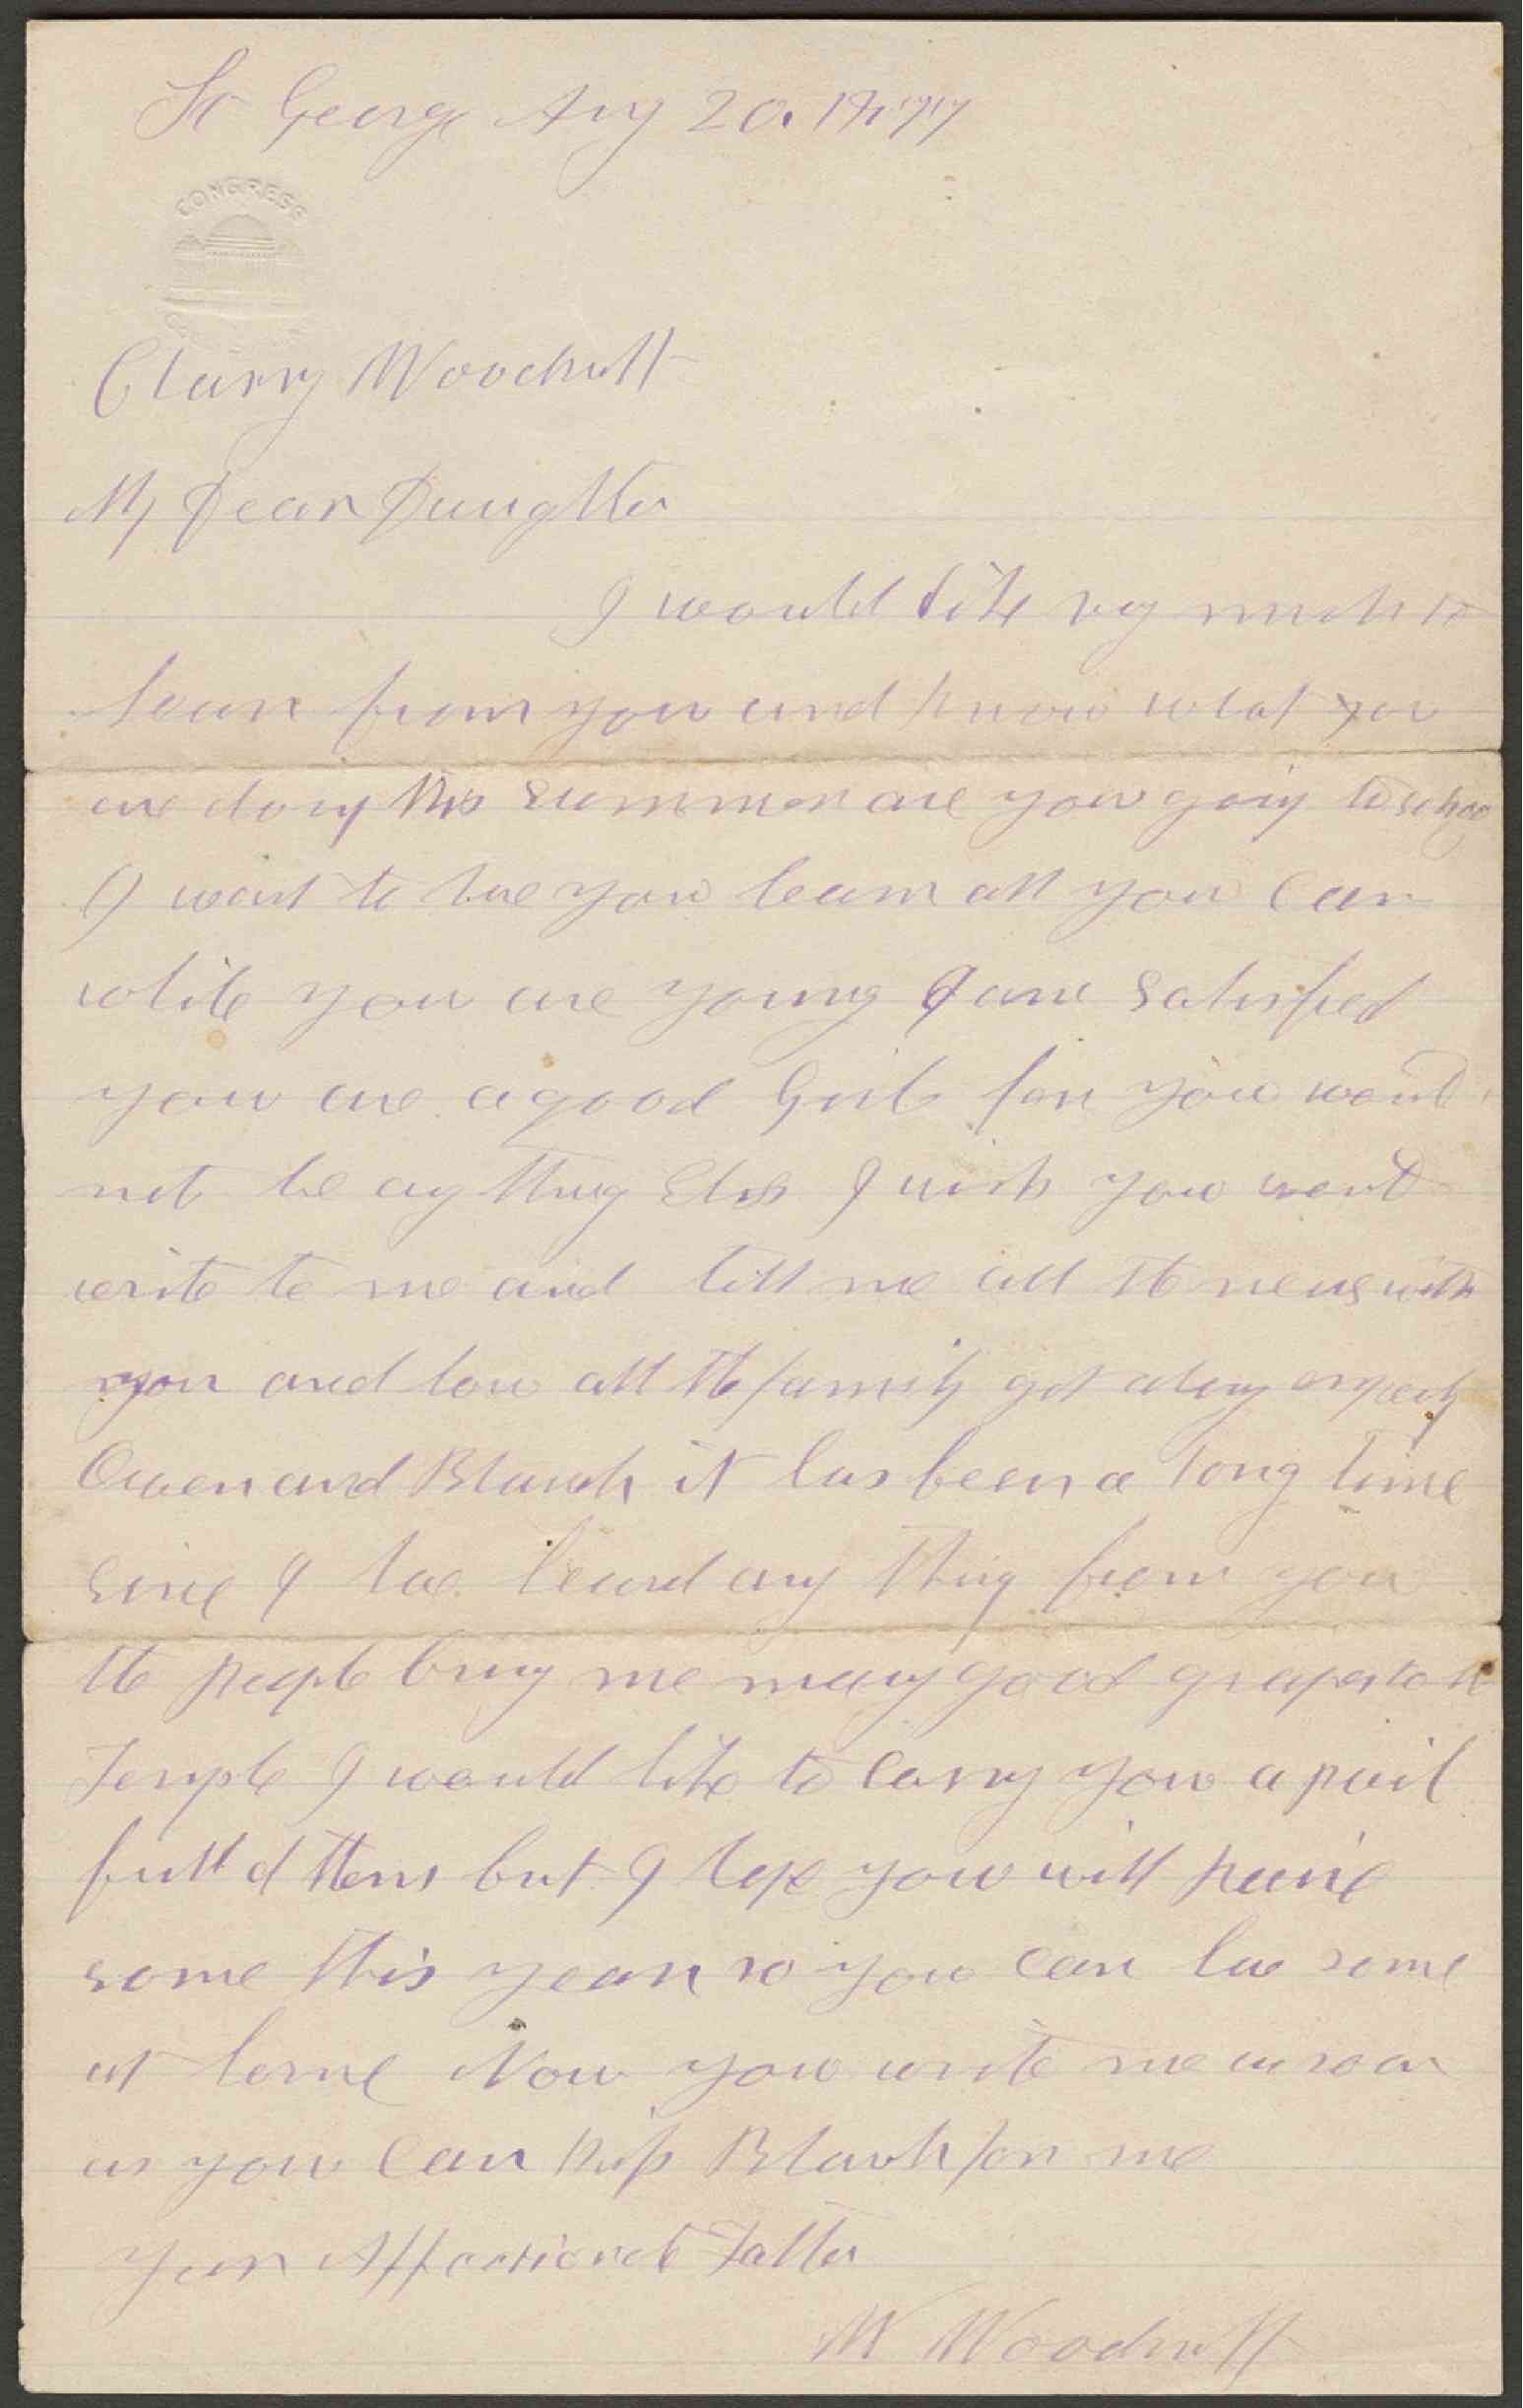 St George Aug 20. 1877
CONGRESS
Clarry Woodruff
My Dear Daughter
I would like vey much to
hear from you and know what you
are doing this summer are you going to school
I want to have you learn all you can
while you are young I am satisfied
you are a good Girl for you would
not be any thing Else I wish you would
write to me and tell me all the news with
you and how all the family get along especily
Owen and Blanch it has been a long time
since I have heard any thing from you
the people bring me many good grapes to the
Temple I would like to carry you a pail
full of them but I hope you will raise
some this year so you can have some
at home Now you write me as soon
as you can Kiss Blanch for me
Your Affectionate Father
W Woodruff